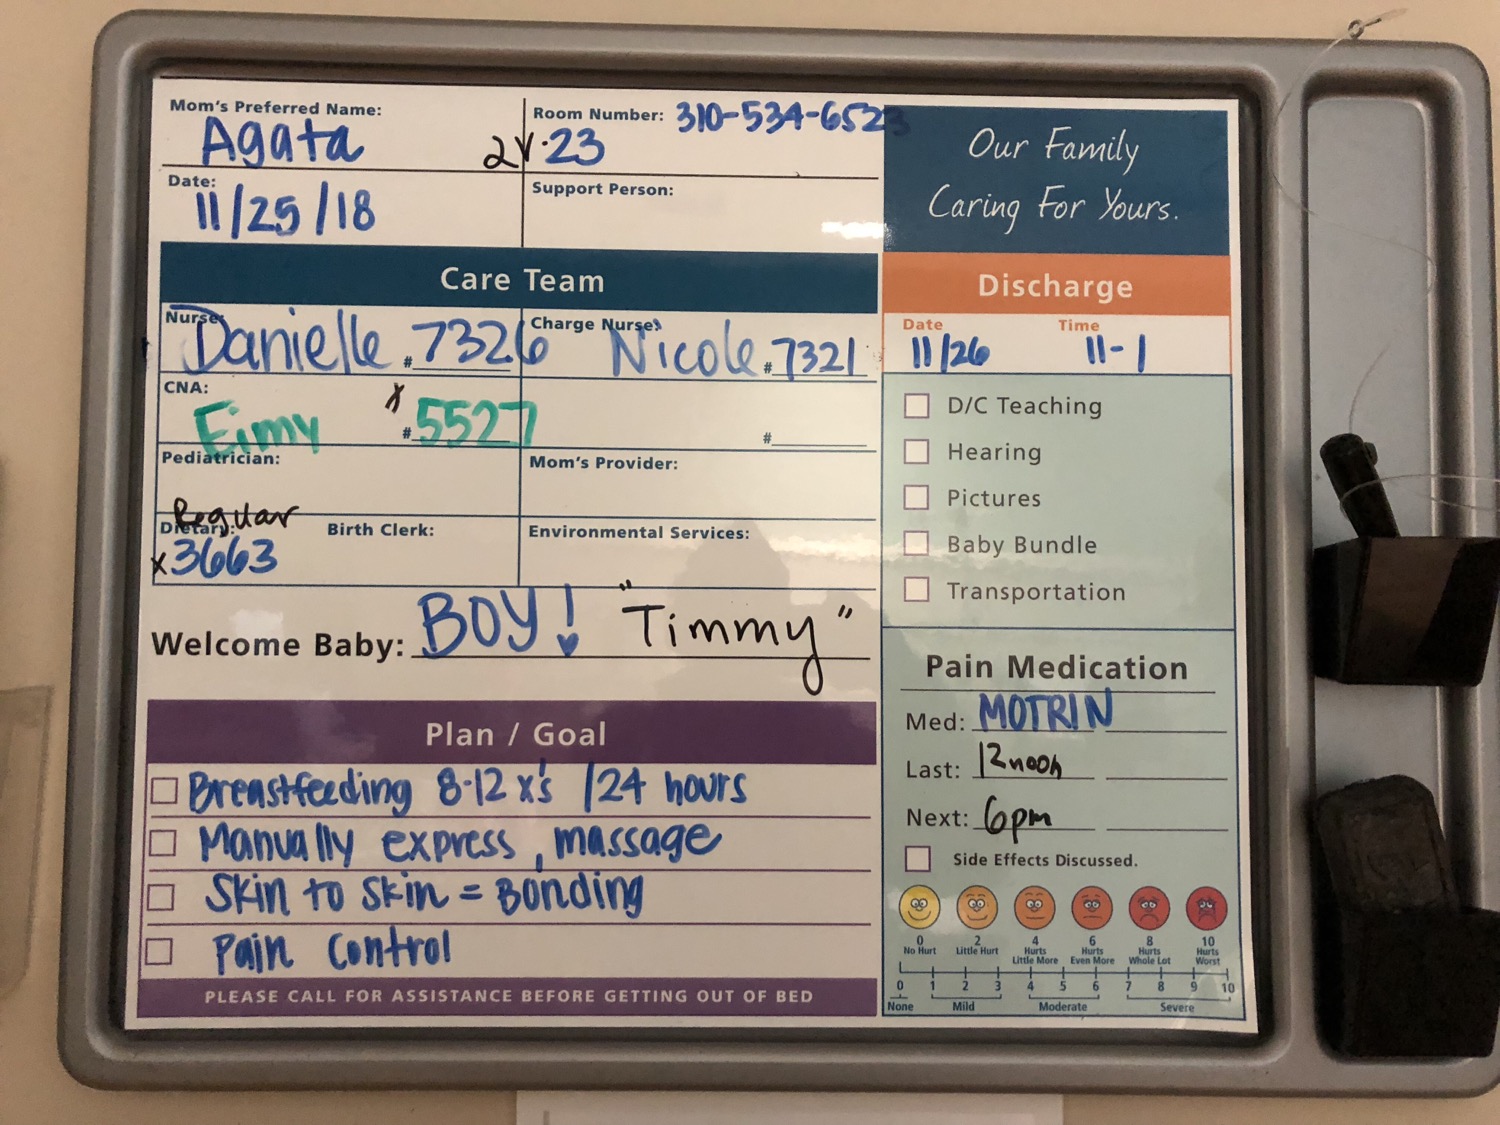 Mom's Preferred Name:
Agata
Room Number: 310-534-6523
2V·23
Date:
11/25/18
Support Person:
Our Family
Caring For Yours.
Care Team
Nurse:
Danielle #7326
Charge Nurse:
Nicole #7321
CNA:
Eimy # x5527
#
Pediatrician:
Mom's Provider:
Regular
Dietary:
x3663
Birth Clerk:
Environmental Services:
Welcome Baby: BOY! "Timmy"
Plan / Goal
Breastfeeding 8-12 x's /24 hours
Manually express, massage
Skin to skin = Bonding
Pain Control
PLEASE CALL FOR ASSISTANCE BEFORE GETTING OUT OF BED
Discharge
Date Time
11/26 11-1
D/C Teaching
Hearing
Pictures
Baby Bundle
Transportation
Pain Medication
Med: MOTRIN
Last: 12noon
Next: 6pm
Side Effects Discussed.
0 2 4 6 8 10
No Hurt Little Hurt Hurts Little More Hurts Even More Hurts Whole Lot Hurts Worst
0 1 2 3 4 5 6 7 8 9 10
None Mild Moderate Severe